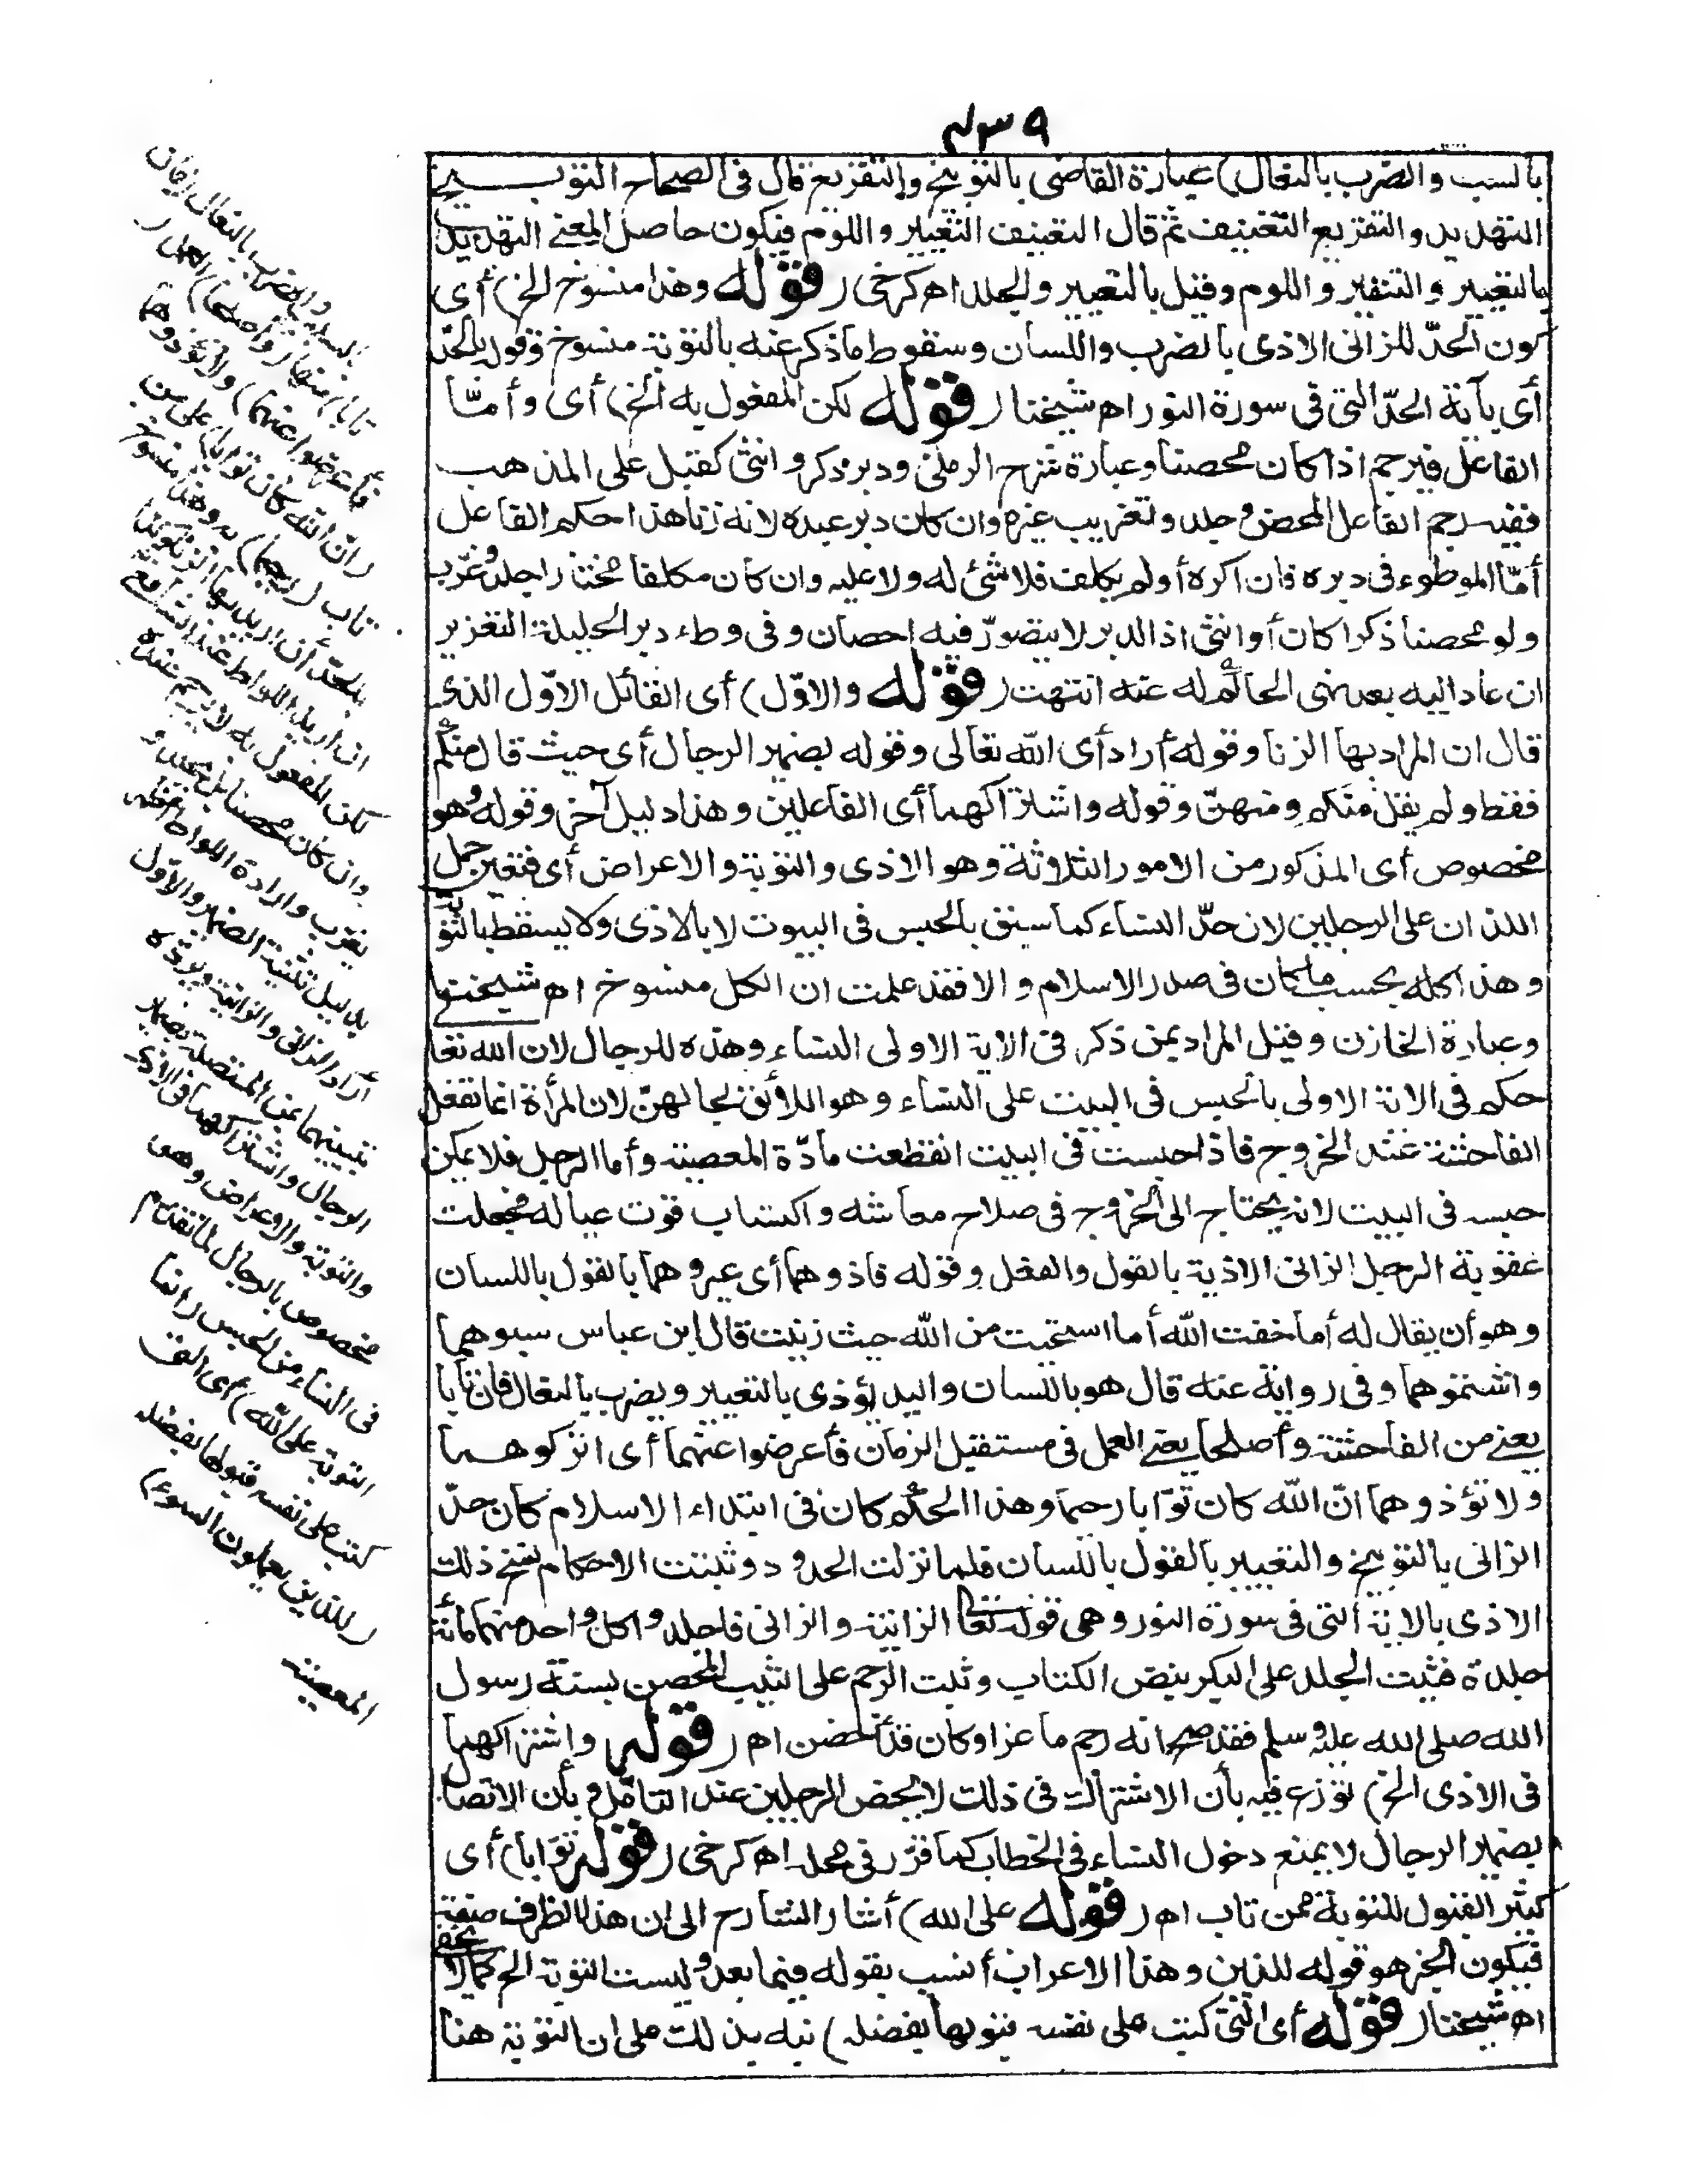 ٤٣٩
بالسب والضرب بالنعال) عبارة القاضى بالتوبيخ والتقريع قال فى الصحاح التوبيخ
التهديد والتقريع التعنيف ثم قال التعنيف التعيير واللوم فيكون حاصل المعنى التهديد
بالتعيير والتنفير واللوم وقيل بالتعيير والجلد اه كرخى (قوله وهذا منسوخ الخ) أى
كون الحدّ للزانى الاذى بالضرب واللسان وسقوط ما ذكر عنه بالتوبة منسوخ وقوله بالحدّ
أى بآية الحدّ التى فى سورة النور اه شيخنا (قوله لكن المفعول به الخ) أى وأمّا
الفاعل فيرجم اذا كان محصنا وعبارة شرح الرملى ودبر ذكر وانثى كقبل على المذهب
ففيه رجم الفاعل المحصن وجلد وتغريب غيره وان كان دبر عبده لانه زنا هذا حكم الفاعل
أمّا الموطوء فى دبره فان اكره أو لم يكلف فلا شئ له ولا عليه وان كان مكلفا مختارا جلد وغرّب
ولو محصنا ذكرا كان أو انثى اذ الدبر لا يتصوّر فيه احصان وفى وطء دبر الحليلة التعزير
ان عاد اليه بعد نهى الحاكم له عنه انتهت (قوله والاوّل) أى القائل الاوّل الذى
قال ان المراد بها الزنا وقوله أراد أى الله تعالى وقوله بضمير الرجال أى حيث قال منكم
فقط ولم يقل منكم ومنهنّ وقوله واشتراكهما أى الفاعلين وهذا دليل آخر وقوله وهو
مخصوص أى المذكور من الامور الثلاثة وهو الاذى والتوبة والاعراض أى فتعين حمل
اللذان على الرجلين لان حدّ النساء كما سبق بالحبس فى البيوت لا بالاذى ولا يسقط بالتوبة
وهذا كله بحسب ما كان فى صدر الاسلام والا فقد علمت ان الكل منسوخ اه شيخنا
وعبارة الخازن وقيل المراد بمن ذكر فى الآية الاولى النساء وهذه للرجال لان الله تعا
حكم فى الاية الاولى بالحبس فى البيت على النساء وهو اللائق بحالهنّ لان المرأة انما تفعل
الفاحشة عند الخروج فاذا حبست فى البيت انقطعت مادّة المعصية وأما الرجل فلا يمكن
حبسه فى البيت لانه يحتاج الى الخروج فى صلاح معاشه واكتساب قوت عياله فجعلت
عقوبة الرجل الزانى الاذية بالقول والفعل وقوله فاذوهما أى عيروهما بالقول باللسان
وهو أن يقال له أما خفت الله أما استحيت من الله حيث زنيت قال ابن عباس سبوهما
واشتموهما وفى رواية عنه قال هو باللسان واليد يؤذى بالتعيير ويضرب بالنعال فان تابا
يعنى من الفاحشة وأصلحا يعنى العمل فى مستقبل الزمان فأعرضوا عنهما أى اتركوهما
ولا تؤذوهما انّ الله كان توّابا رحيما وهذا الحكم كان فى ابتداء الاسلام كان حدّ
الزانى بالتوبيخ والتعيير بالقول باللسان فلما نزلت الحدود وثبتت الاحكام نسخ ذلك
الاذى بالاية التى فى سورة النور وهى قوله تعا الزانية والزانى فاجلدوا كل واحد منهما مائة
جلدة فثبت الجلد على البكر بنص الكتاب وثبت الرجم على الثيب المحصن بسنّة رسول
الله صلى الله عليه وسلم فقد صح انه رجم ماعزا وكان قد أحصن اه (قوله واشتراكهما
فى الاذى الخ) نوزع فيه بأن الاشتراك فى ذلك لا يخص الرجلين عند التأمّل وبأن الاتصا
بضمير الرجال لا يمنع دخول النساء فى الخطاب كما قرّر فى محله اه كرخى (قوله توّابا) أى
كثير القبول للتوبة ممن تاب اه (قوله على الله) أشار الشارح الى ان هذا الظرف صفة
فيكون الخبر هو قوله للذين وهذا الاعراب أنسب بقوله فيما بعد وليست التوبة الخ كما لا يخفى
اه شيخنا (قوله أى التى كتب على نفسه قبولها بفضله) نبه بذلك على ان التوبة هنا
بالسب والضرب بالنعال (فان
تابا) منها (وأصلحا) العمل (
فأعرضوا عنهما) ولا تؤذوهما
(انّ الله كان توّابا) على من
تاب (رحيما) به وهذا منسوخ
بالحدّ أن اريد بها الزنا وكذا
ان اريد اللواط عند الشافعى
لكن المفعول به لا يرجم عنده
وان كان محصنا بل يجلد و
يغرّب وارادة اللواط أظهر
بدليل تثنية الضمير والاوّل
أراد الزانى والزانية ويردّه
تبيينهما بمن المتصلة بضمير
الرجال واشتراكهما فى الاذى
والتوبة والاعراض وهو
مخصوص بالرجال لما تقدم
فى النساء من الحبس (انما
التوبة على الله) أى التى
كتب على نفسه قبولها بفضله
(للذين يعملون السوء)
المعصية